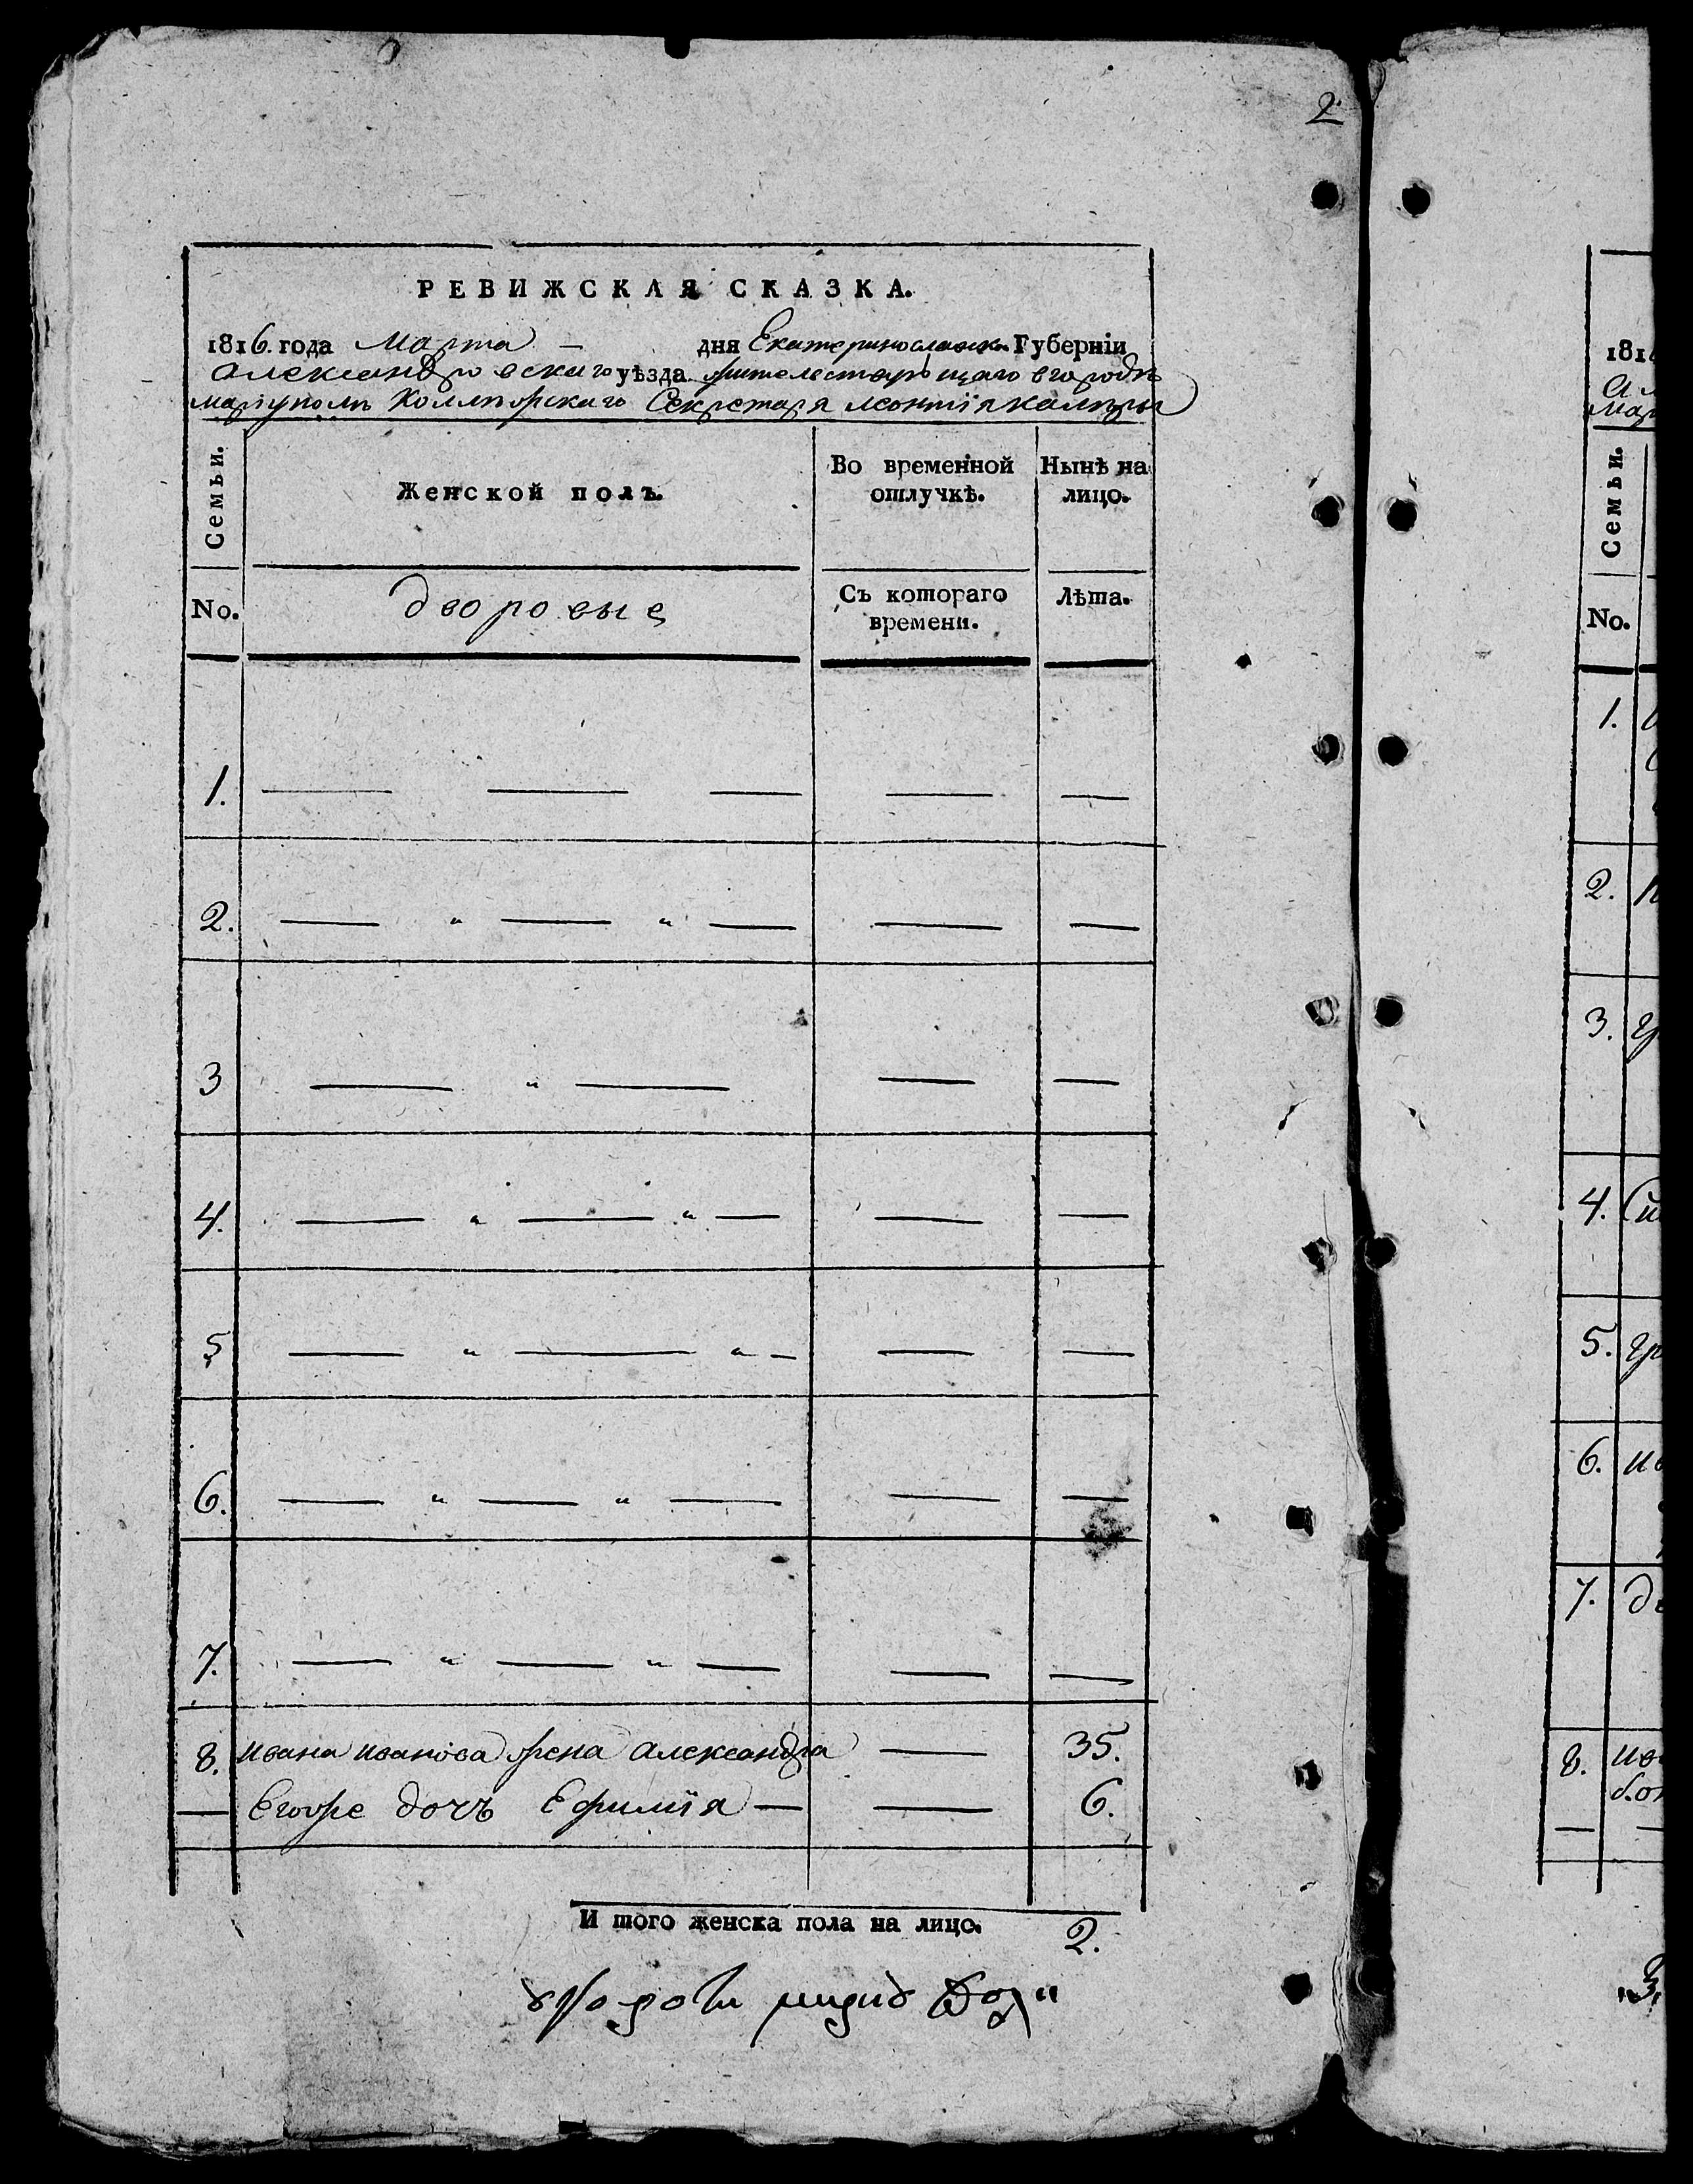 2
РЕВИЖСКАЯ СКАЗКА.
1816. года Марта — дня Екатеринославск. Губерніи
александровскаго уѣзда жительствующаго вгородѣ
маріуполѣ Коллѣжскаго Секретаря леонтія калѣры
Семьи.
Женской полъ.
Во временной отлучкѣ.
Нынѣ на лицо.
No.
дворовые
Съ котораго времени.
Лѣта.
1. — — — — —
2. — „ — „ — — —
3 — „ — — —
4. — „ — „ — — —
5 — „ — „ — — —
6. — „ — „ — — —
7. — „ — „ — — —
8. ивана иванова жена александра — 35.
— Егоже дочь Ефимія — — 6.
И того женска пола на лицо. 2.
181
Семьи.
No.
1.
2.
3.
4.
5.
6.
7.
8.